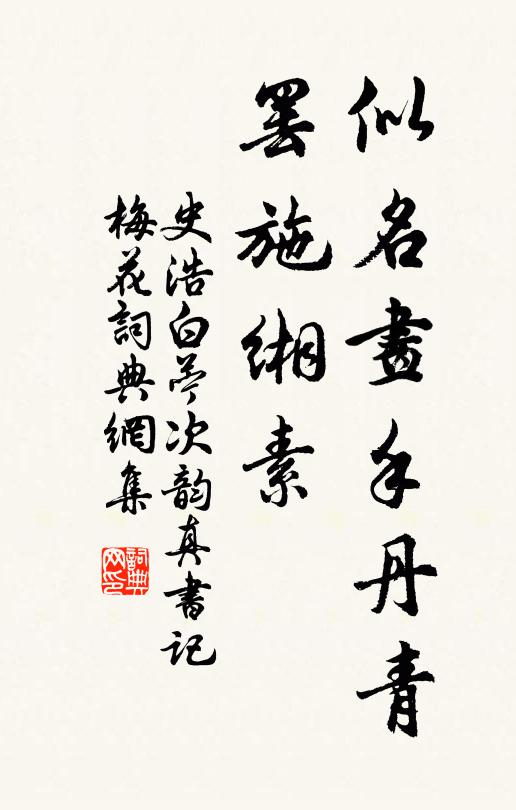 似名畫手丹青
罢施緗素
史浩白苎次韵真書記
梅花詞典網集
詞典网印